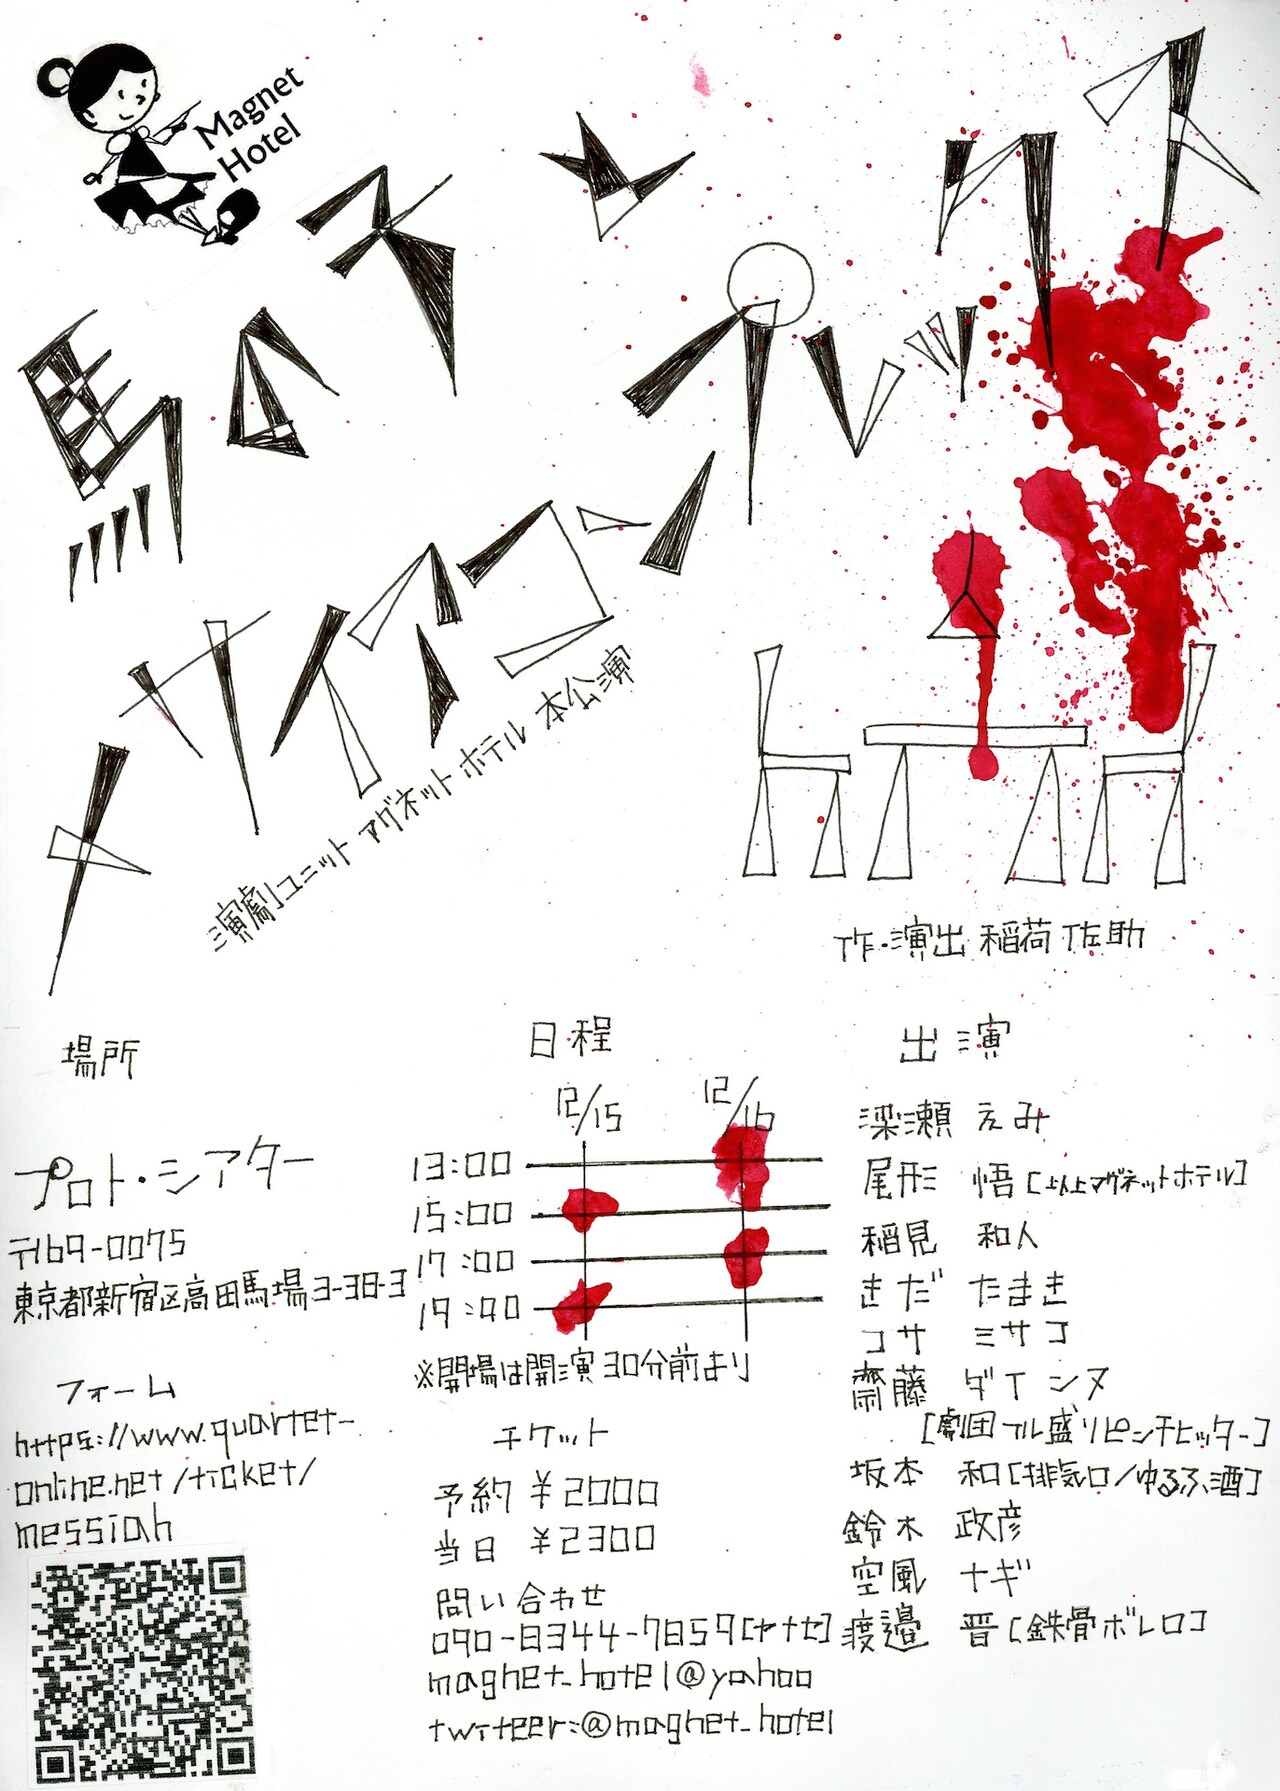 Magnet
Hotel
演劇ユニット マグネットホテル 本公演
作・演出 稲荷 佐助
場所
プロト・シアター
〒169-0075
東京都新宿区高田馬場3-38-3
フォーム
https://www.quartet-
online.net/ticket/
messiah
日程
12/15 12/16
13:00
15:00
17:00
19:00
※開場は開演30分前より
チケット
予約 ¥2000
当日 ¥2300
問い合わせ
090-8344-7859[ヤナセ]
magnet_hotel@yahoo
twiteer:@magnet_hotel
出演
梁瀬 えみ
尾形 悟[以上マグネットホテル]
稲見 和人
きだ たまき
コサ ミサコ
齋藤 ダイシヌ
[劇団フル盛りピンチヒッター]
坂本 和[排気口/ゆるふ酒]
鈴木 政彦
空風 ナギ
渡邉 晋[鉄骨ボレロ]